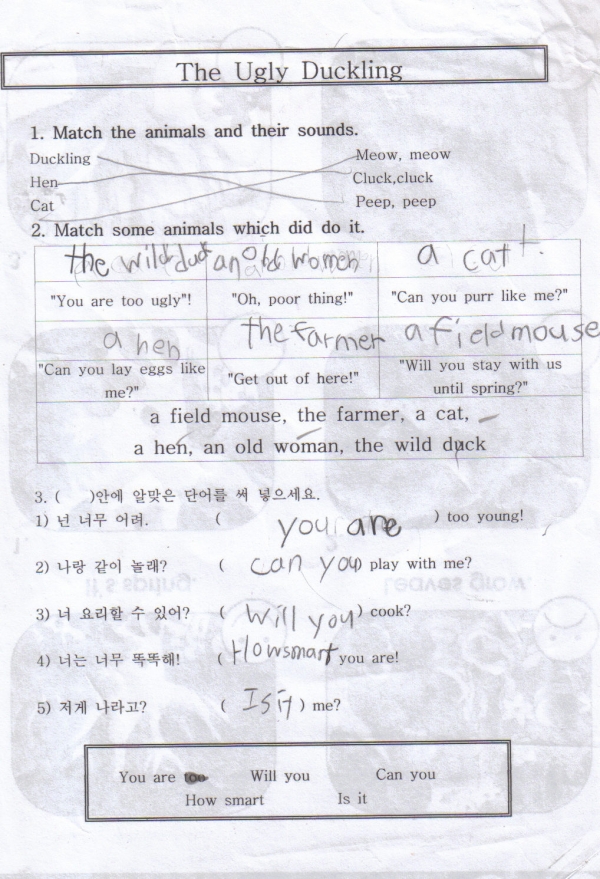 The Ugly Duckling
1. Match the animals and their sounds.
Duckling Meow, meow
Hen Cluck,cluck
Cat Peep, peep
2. Match some animals which did do it.
the wild duck an old women a cat
"You are too ugly"! "Oh, poor thing!" "Can you purr like me?"
a hen the farmer a field mouse
"Can you lay eggs like me?" "Get out of here!" "Will you stay with us until spring?"
a field mouse, the farmer, a cat,
a hen, an old woman, the wild duck
3. ( )안에 알맞은 단어를 써 넣으세요.
1) 넌 너무 어려. ( you are ) too young!
2) 나랑 같이 놀래? ( can you play with me?
3) 너 요리할 수 있어? ( will you ) cook?
4) 너는 너무 똑똑해! ( How smart you are!
5) 저게 나라고? ( Is it ) me?
You are too Will you Can you
How smart Is it
it's spring.
Leaves grow.